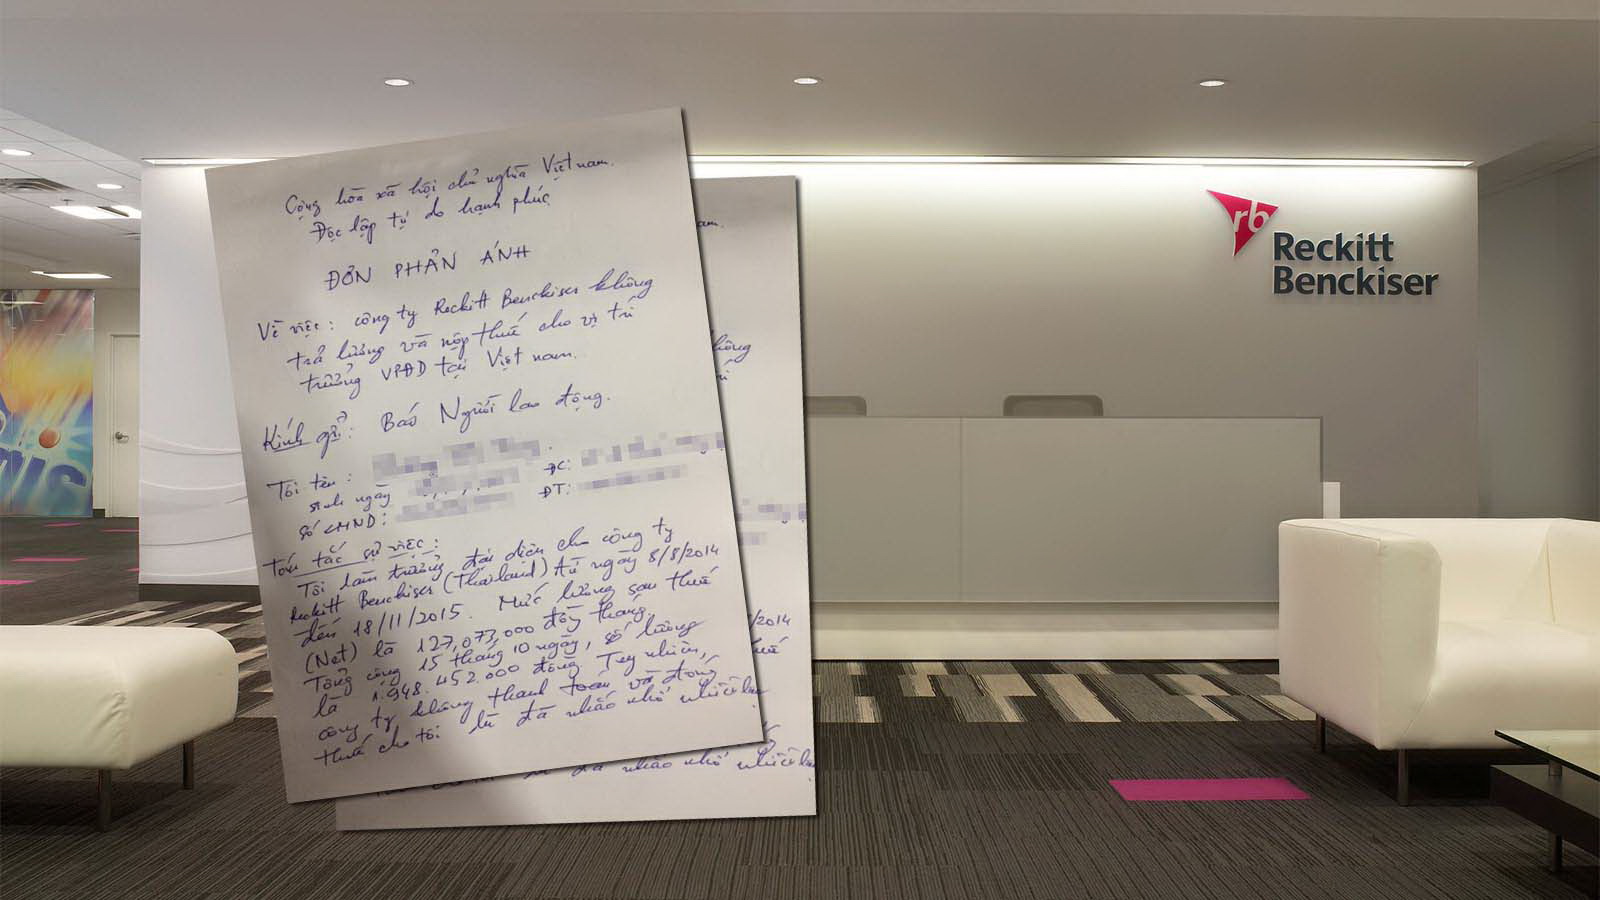 Cộng hòa xã hội chủ nghĩa Việt nam.
Độc lập tự do hạnh phúc
ĐƠN PHẢN ÁNH
Về việc: công ty Reckitt Benckiser không
trả lương và nộp thuế cho vị trí
trưởng VPĐD tại Việt nam.
Kính gửi: Báo Người lao động.
Tôi tên:
ĐC:
sinh ngày
ĐT:
Số CMND:
Tóm tắc sự việc:
Tôi làm trưởng đại diện cho công ty
Reckitt Benckiser (Thailand) từ ngày 8/8/2014
đến 18/11/2015. Mức lương sau thuế
(Net) là 127,073,000 đồng tháng.
Tổng cộng 15 tháng 10 ngày, số lương
là 1.948.452.000 đồng. Tuy nhiên,
công ty không thanh toán và đóng
thuế cho tôi dù đã nhắc nhở nhiều lần
am.
hông
rí
/2014
uế
đã nhắc nhở nhiều lần
rb
Reckitt
Benckiser